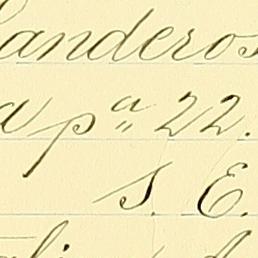 anderos
a pª 22.
S. E.